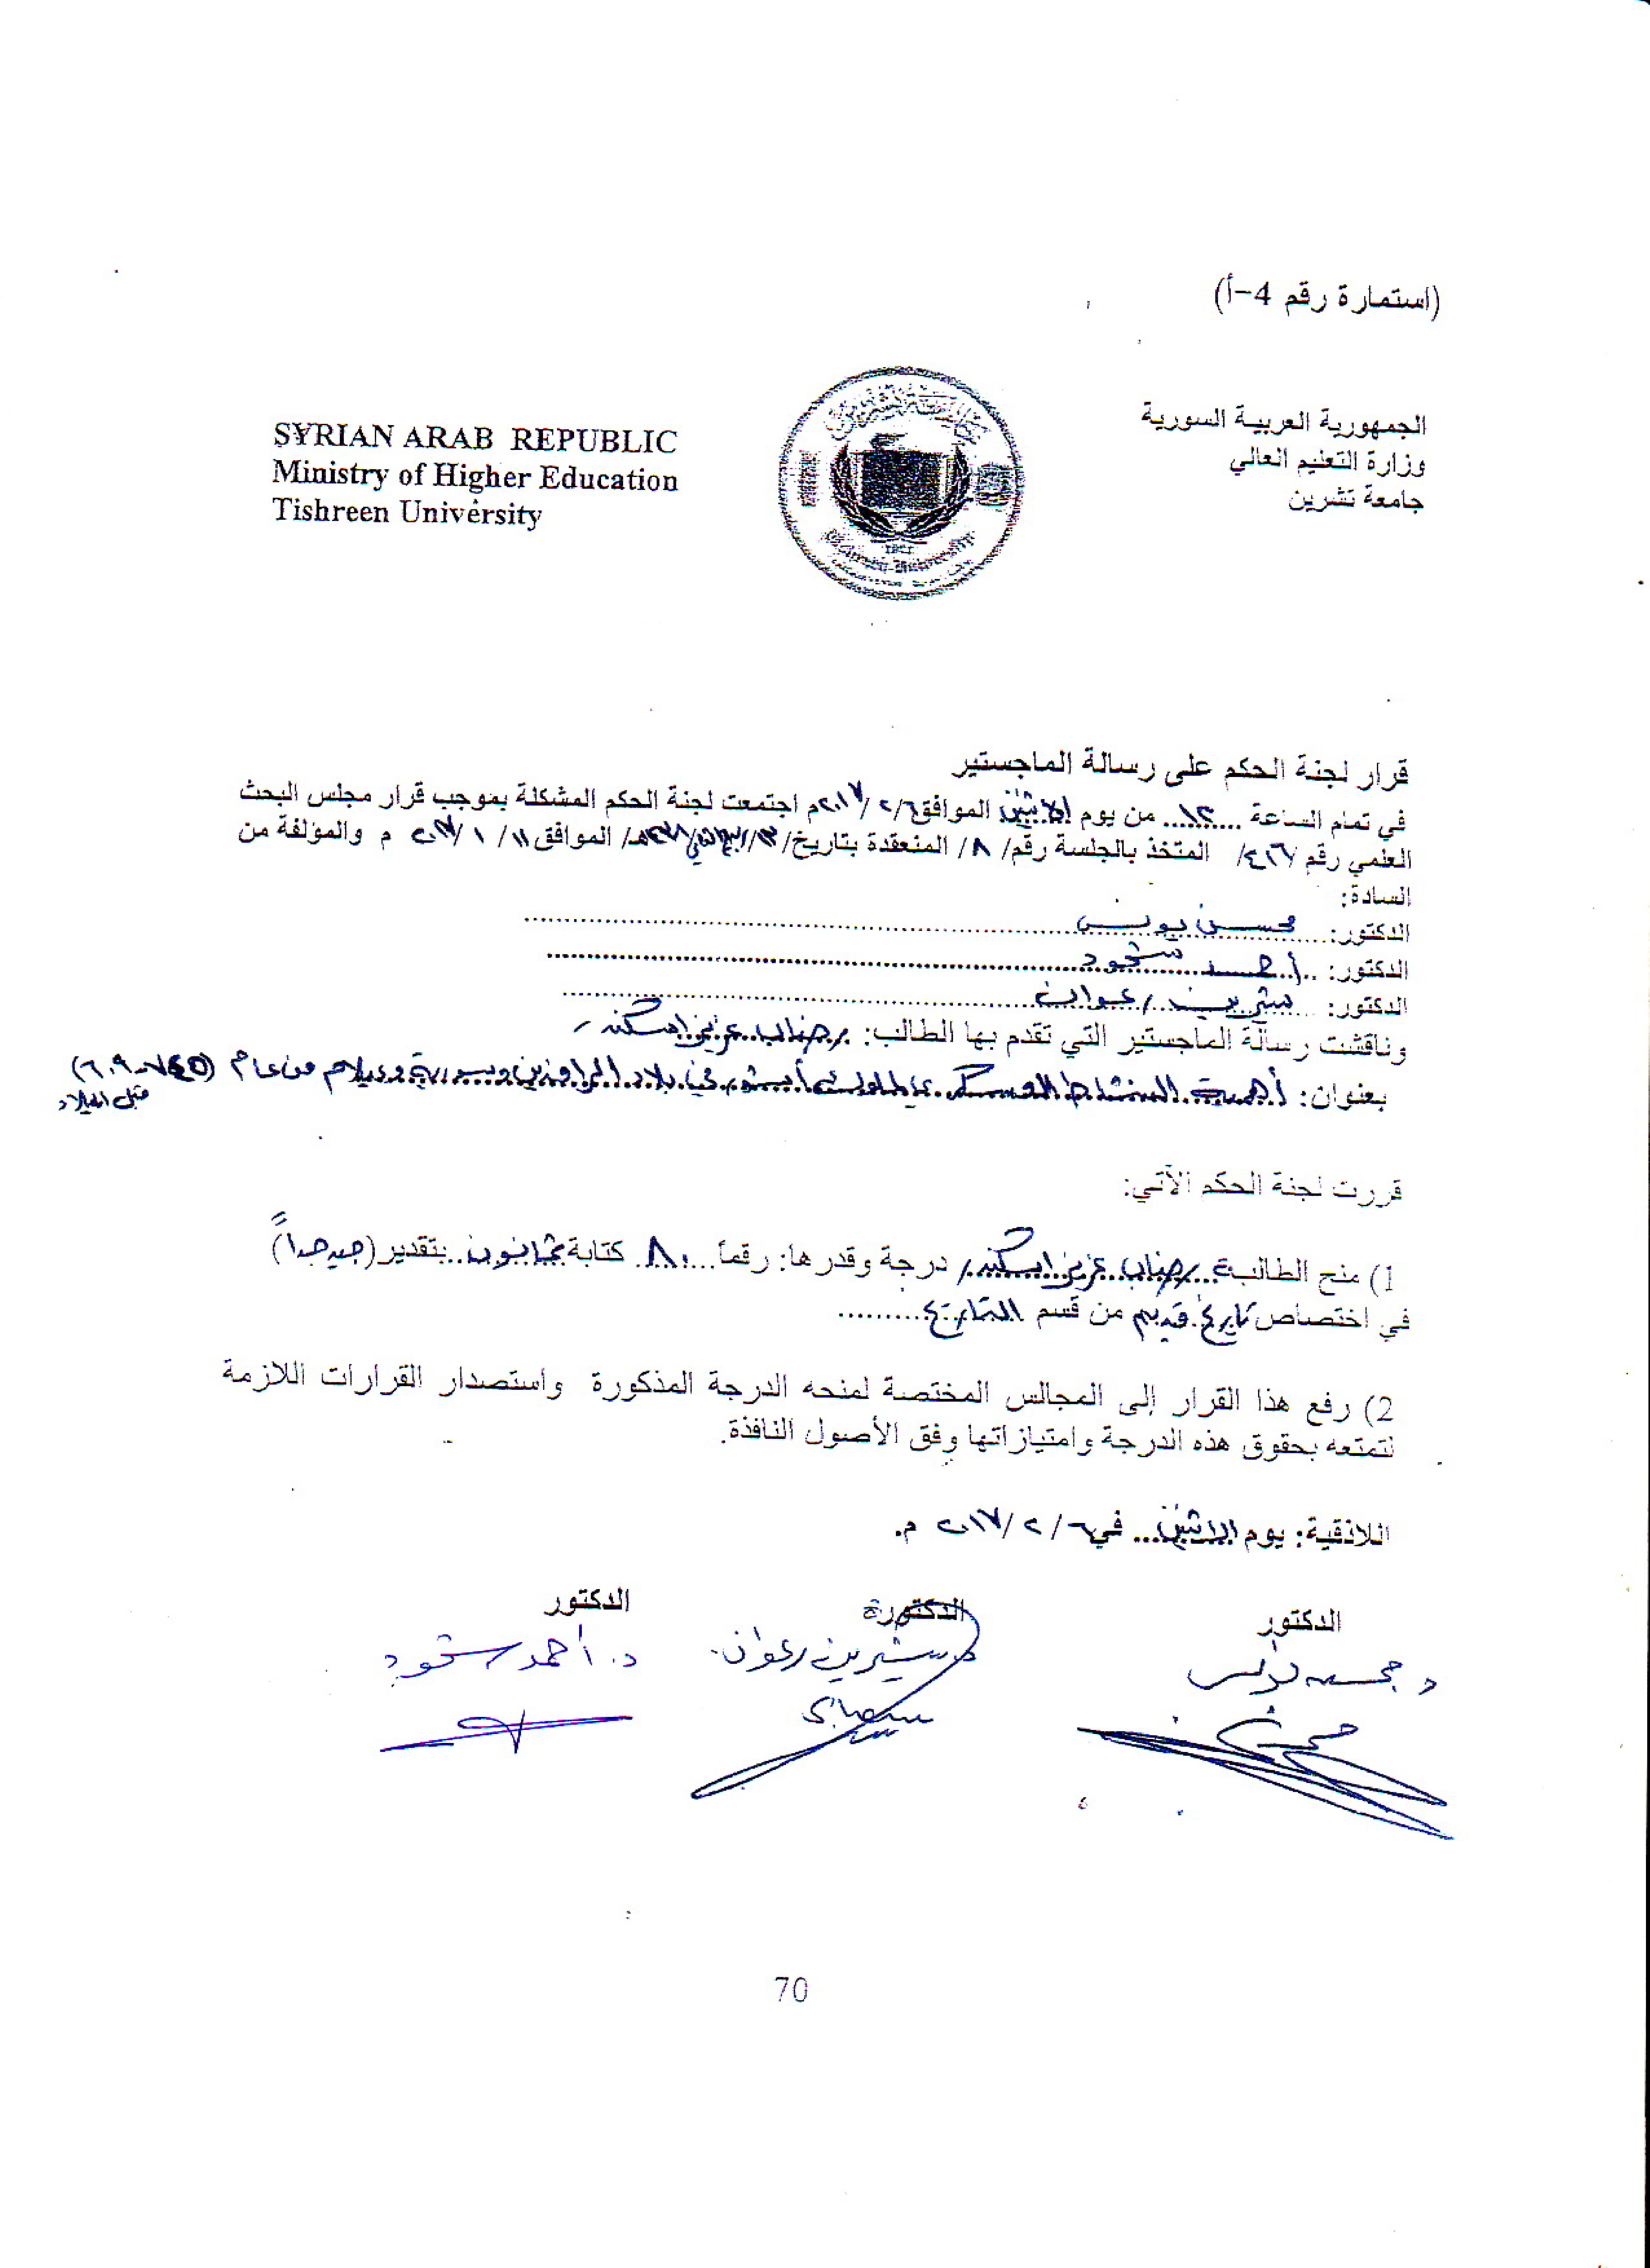 (استمارة رقم 4-أ)
الجمهورية العربية السورية
وزارة التعليم العالي
جامعة تشرين
SYRIAN ARAB REPUBLIC
Ministry of Higher Education
Tishreen University
قرار لجنة الحكم على رسالة الماجستير
في تمام الساعة ١٢ من يوم الاثنين الموافق ٢٠١٧/٢/٦م اجتمعت لجنة الحكم المشكلة بموجب قرار مجلس البحث
العلمي رقم /٤٢٦/ المتخذ بالجلسة رقم /٨/ المنعقدة بتاريخ /١٣/ربيع الثاني/ هـ/ الموافق ١١/ ١/ ٢٠١٧ م والمؤلفة من
السادة:
الدكتور: محسن يونس
الدكتور: أحمد شحود
الدكتور: شيرين رعوان
وناقشت رسالة الماجستير التي تقدم بها الطالب: رضاب عزيز اسكندر
بعنوان: أهمية النشاط العسكري لملوك آشور في بلاد الرافدين وسورية وعيلام من عام (٧٤٥-٦٠٩)
قبل الميلاد
قررت لجنة الحكم الآتي:
1) منح الطالبة رضاب عزيز اسكندر درجة وقدرها: رقماً ٨٠ كتابة ثمانون بتقدير (جيد جداً)
في اختصاص تاريخ قديم من قسم التاريخ
2) رفع هذا القرار إلى المجالس المختصة لمنحه الدرجة المذكورة واستصدار القرارات اللازمة
لتمتعه بحقوق هذه الدرجة وامتيازاتها وفق الأصول النافذة.
اللاذقية: يوم الاثنين في ٦/ ٢/ ٢٠١٧ م.
الدكتور الدكتورة الدكتور
د. محسن يونس د. شيرين رعوان د. أحمد شحود
70